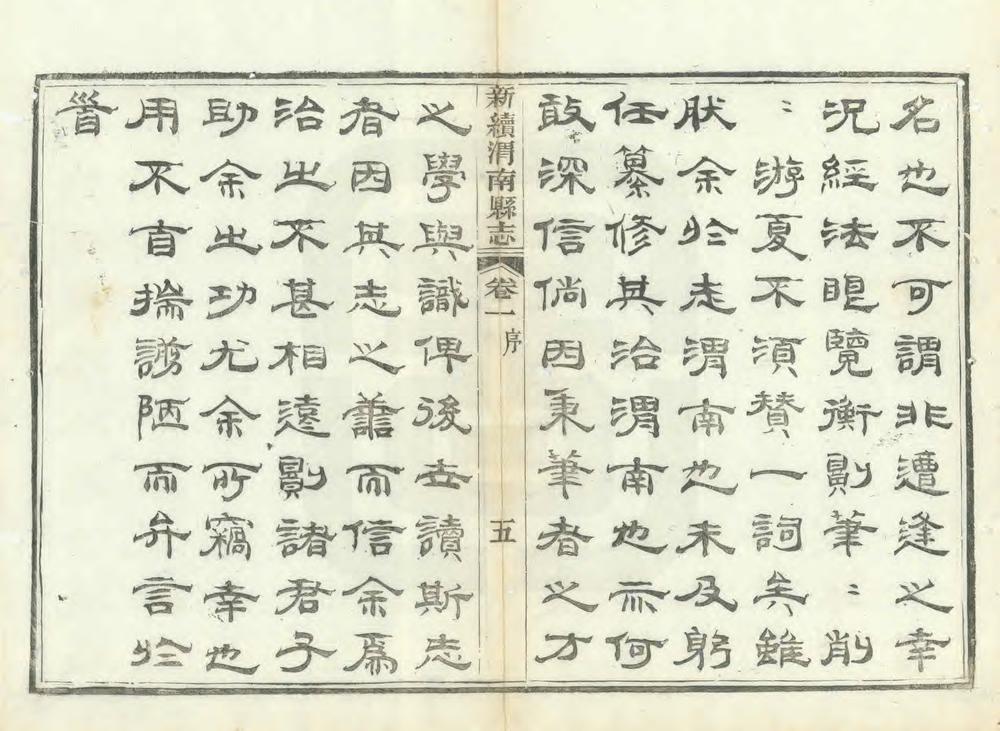 名也不可謂非遭逢之幸
況經法眼覽衡則筆﹦削
﹦游夏不須贊一詞矣雖
肰余於志渭南也未及躬
任纂修其治渭南也亦何
敢深信倘因秉筆者之才
新續渭南縣志 卷一 序 五
之學與識俾後世讀斯志
者因其志之善而信余爲
治之不甚相遠則諸君子
助余之功尤余所竊幸也
用不自揣謭陋而弁言於
首